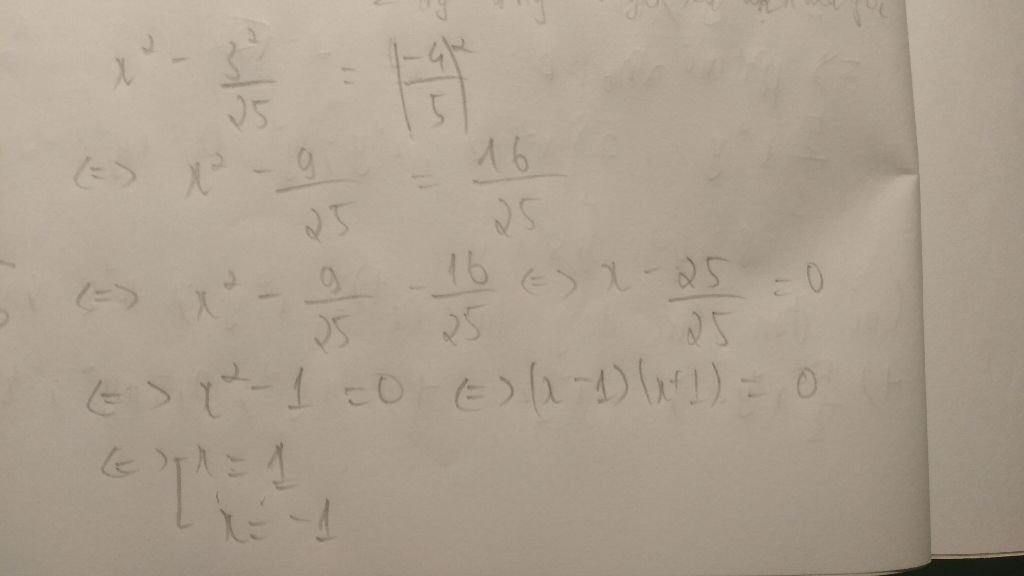 x² - 3²/25 = |-4/5|²
<=> x² - 9/25 = 16/25
<=> x² - 9/25 - 16/25 <=> x - 25/25 = 0
<=> x² - 1 = 0 <=> (x - 1)(x + 1) = 0
<=> [x = 1
x = -1